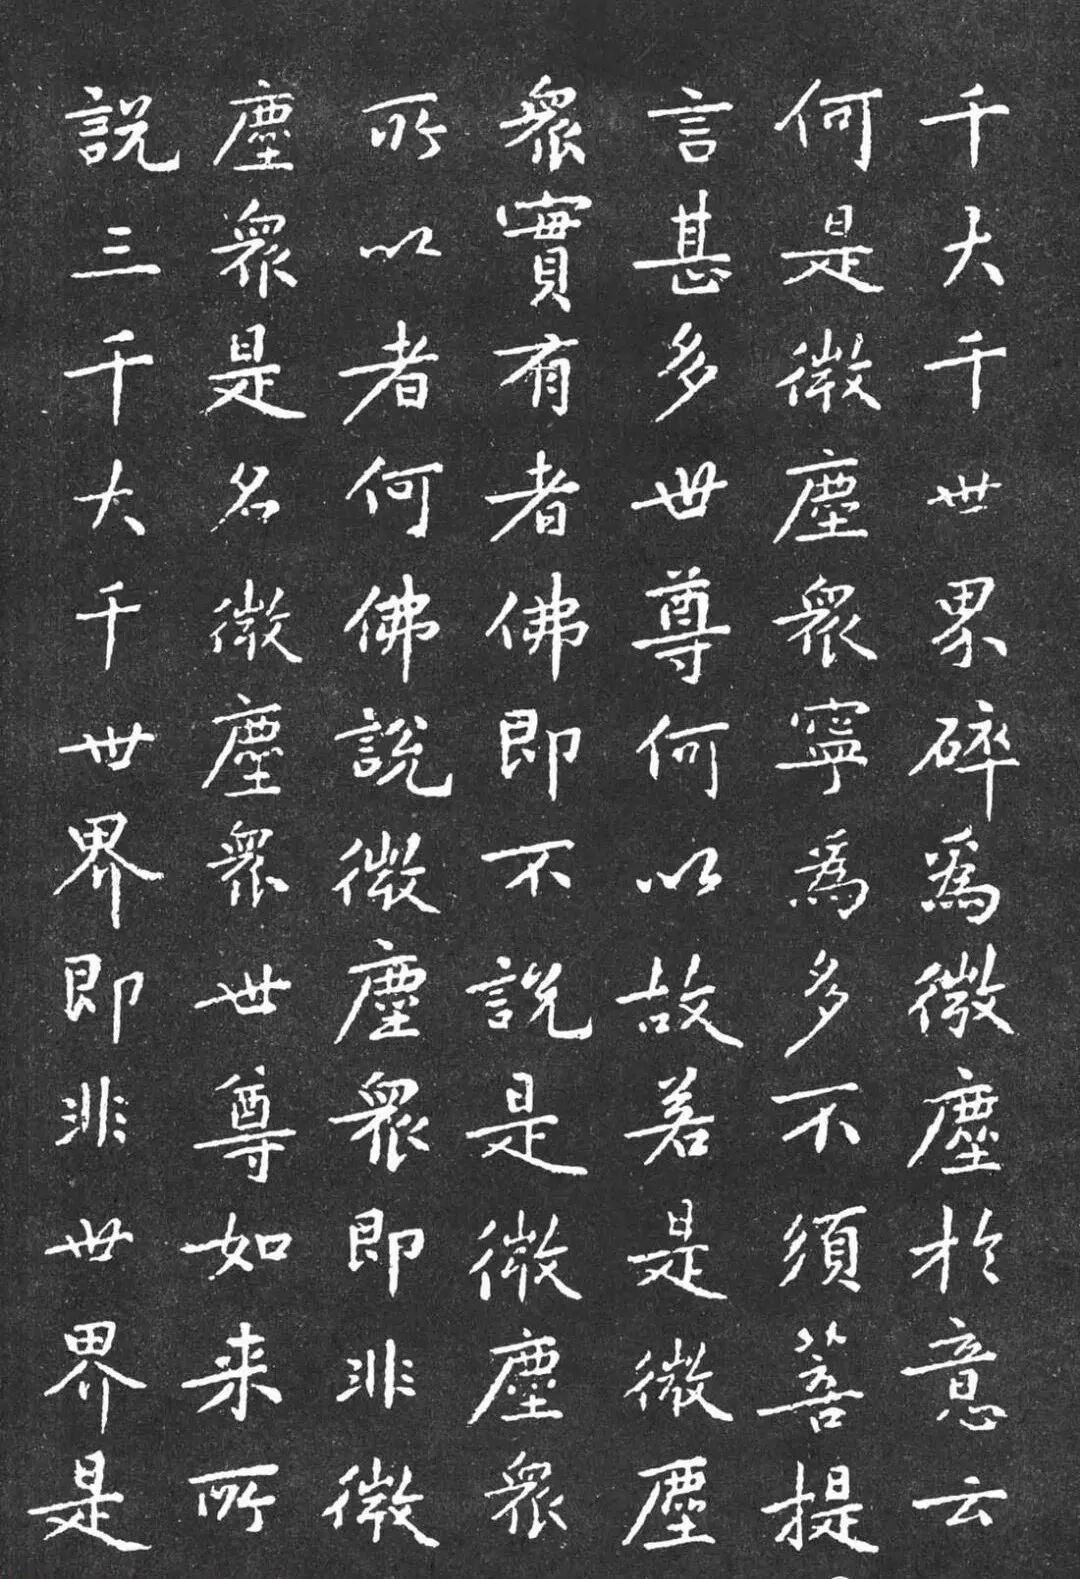 千大千世界碎爲微塵於意云
何是微塵衆寧爲多不須菩提
言甚多世尊何以故若是微塵
衆實有者佛即不說是微塵衆
所以者何佛說微塵衆即非微
塵衆是名微塵衆世尊如来所
説三千大千世界即非世界是